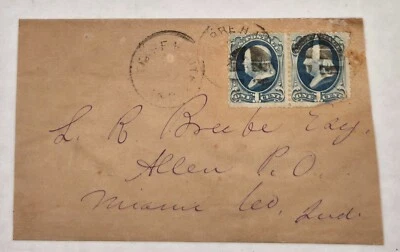 L. R. Breeke Esq.
Allen P. O.
Miami Co. Ind.